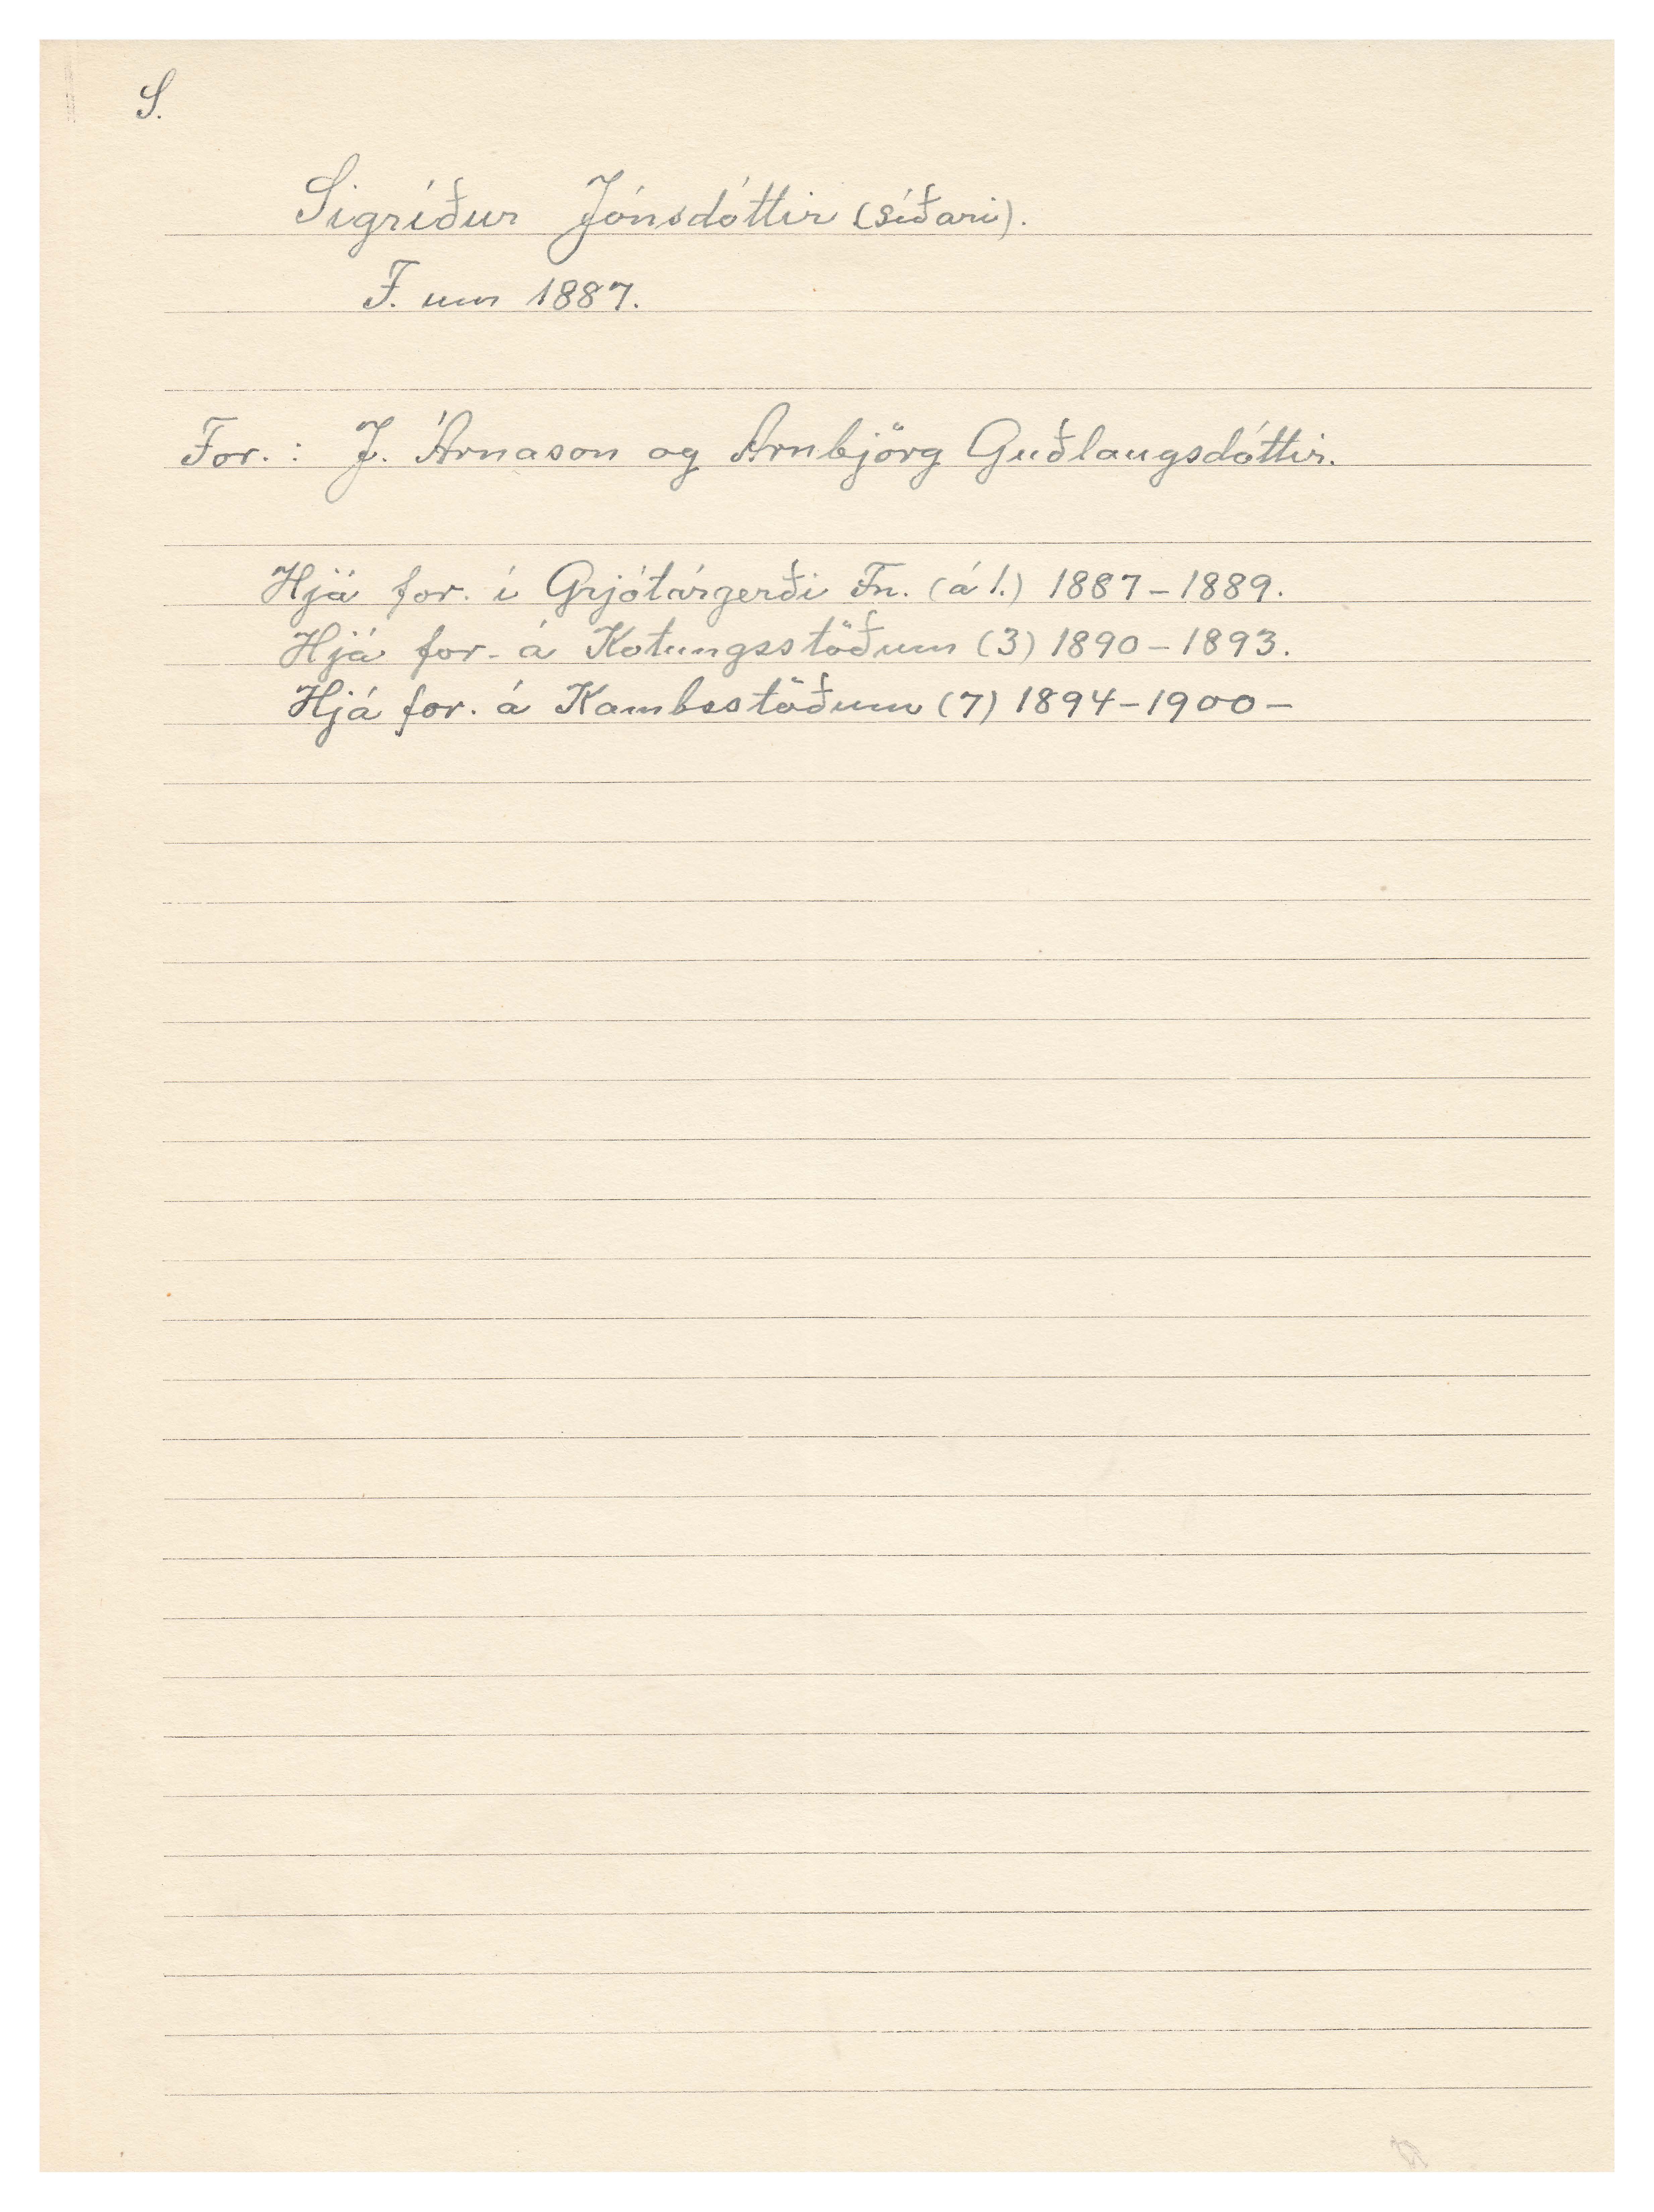 S.
Sigríður Jónsdóttir (síðari).
F. um 1887.
For.: J. Árnason og Arnbjörg Guðlaugsdóttir.
Hjá for. í Grjótárgerði Fn. (á 1.) 1887-1889.
Hjá for. á Kotungsstöðum (3) 1890-1893.
Hjá for. á Kambsstöðum (7) 1894-1900-